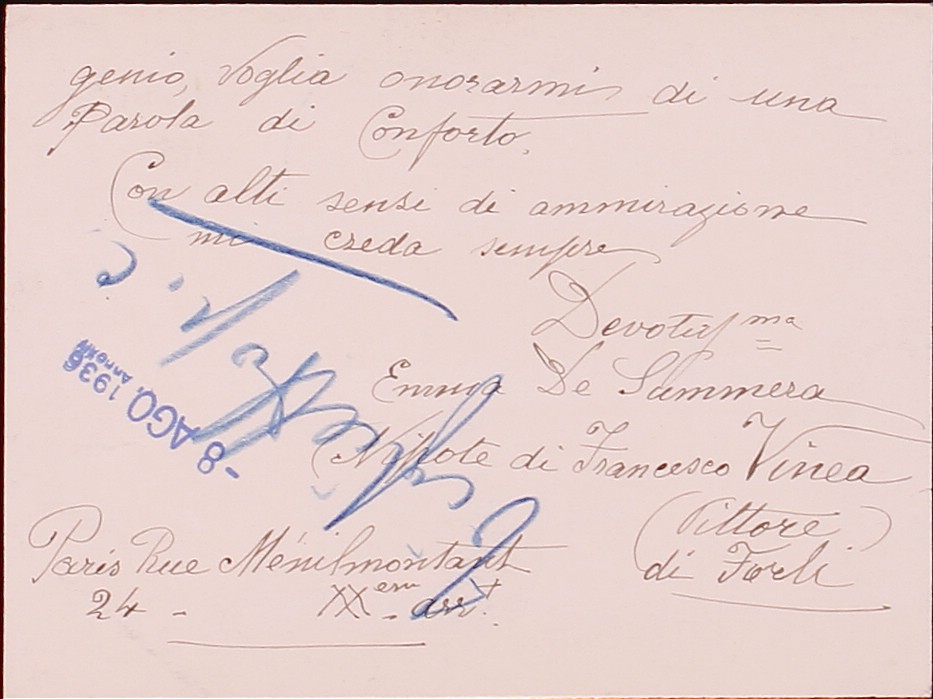 genio, Voglia onorarmi di una
Parola di Conforto.
Con alti sensi di ammirazione
mi creda sempre
Devotiss ma
Emma De Sammera
(Nipote di Francesco Vinea
(Pittore)
di Forlì
Paris Rue Ménilmontant
24 - XX em arr t.
-8 AGO. 1936
ANNO XIV